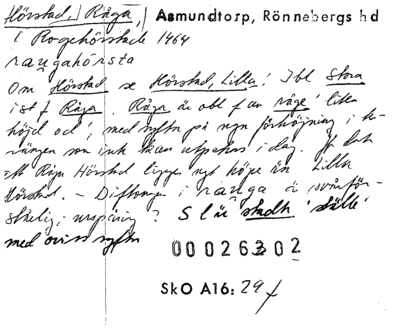 Hörstad, Råga, Asmundtorp, Rönnebergs hd
i Rogehörstade 1464
raugahörsta
Om Hörstad se Hörstad, Lilla! I bl Stora
ist f Råga. Råga är obl f av råge 'liten
höjd od', med syftn på ngn förhöjning i te-
rrängen som ink kan utpekas i dag.
att Råga Hörstad ligger ngt högre än Lilla
Hörstad. - Diftongen i rauga är svårför-
ståelig, ursprung? S l är stadh 'ställe'
med oviss syftn
00026302
SkO A16: 29